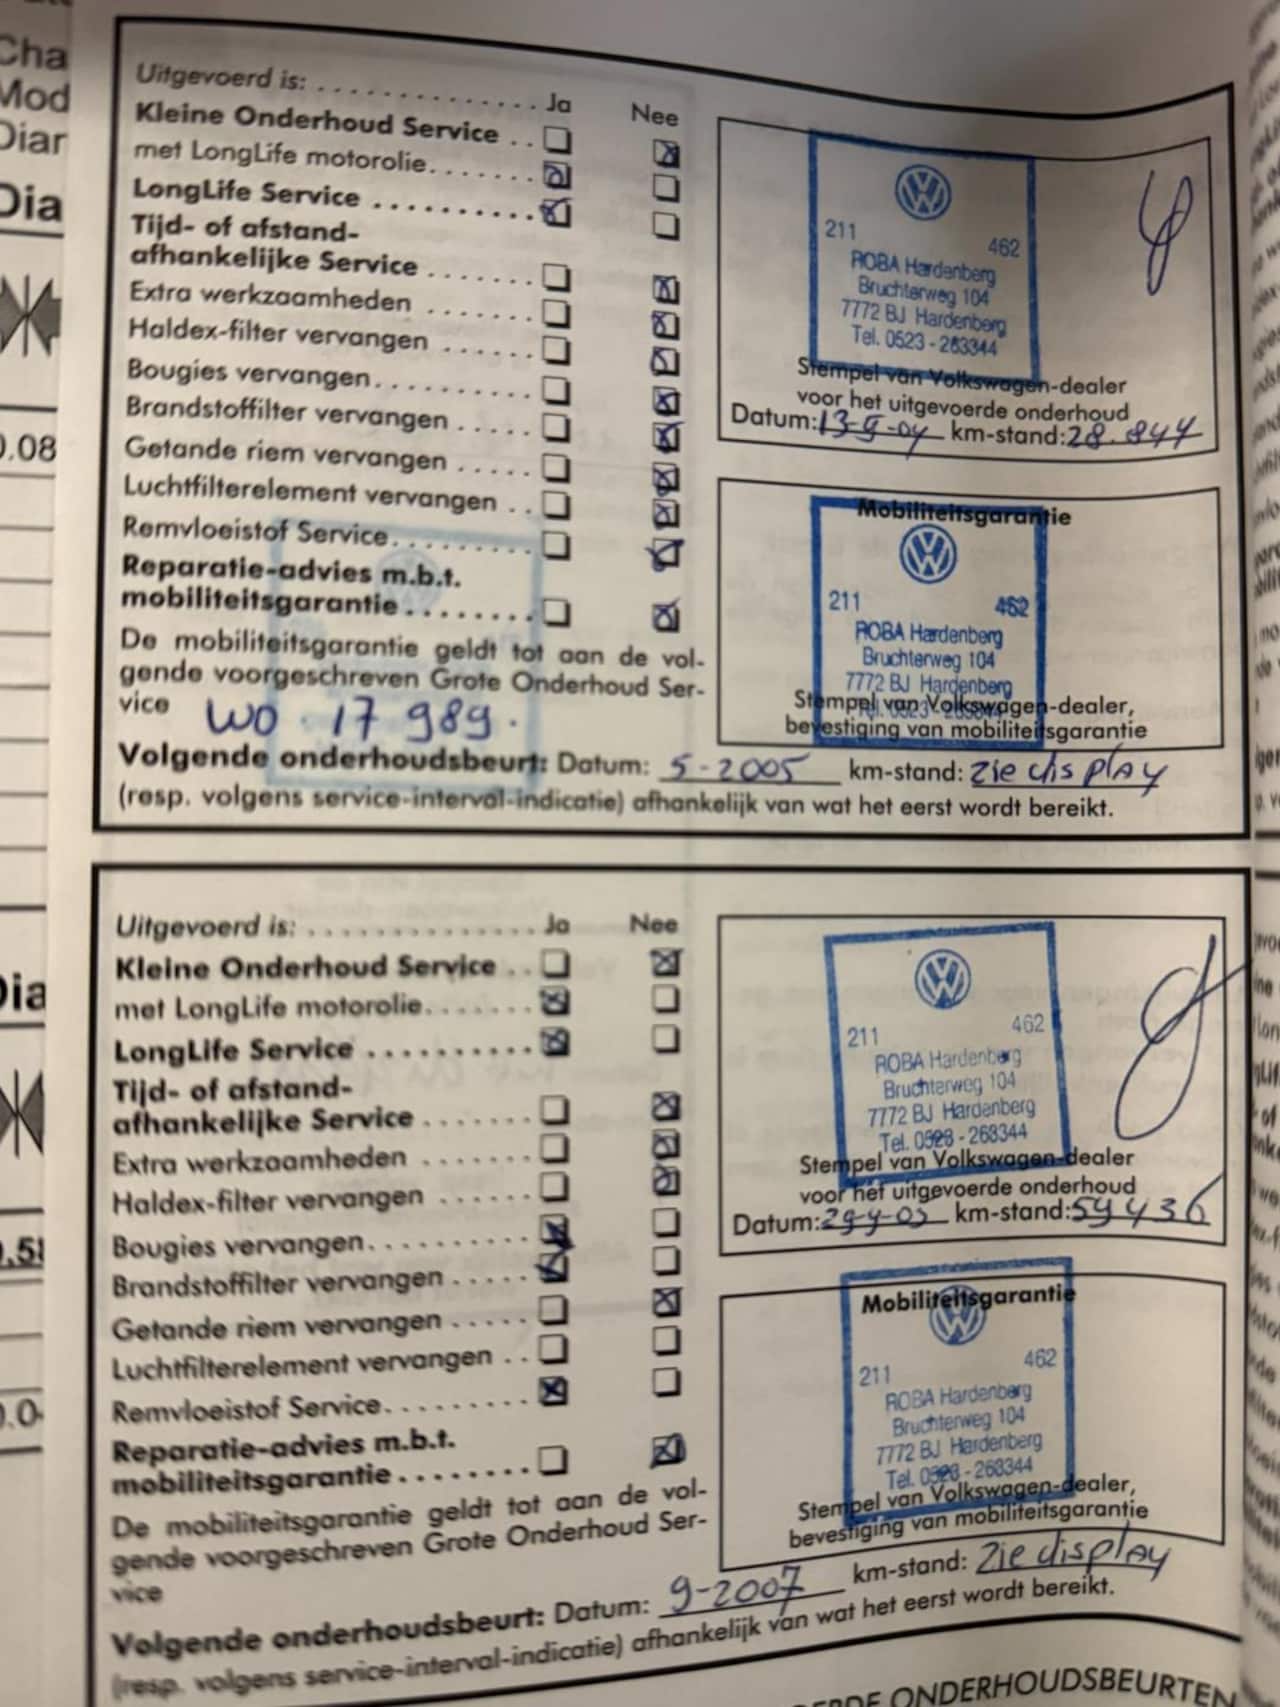 Cha
Mod
Diar
Dia
0.08
Uitgevoerd is: . . . . . . . . . . . . . . Ja Nee
Kleine Onderhoud Service . .
met LongLife motorolie. . . . . . .
LongLife Service . . . . . . . . . .
Tijd- of afstand-
afhankelijke Service . . . . . .
Extra werkzaamheden . . . . . .
Haldex-filter vervangen . . . . .
Bougies vervangen. . . . . . . . .
Brandstoffilter vervangen . . . . .
Getande riem vervangen . . . . .
Luchtfilterelement vervangen . .
Remvloeistof Service. . . . . . . .
Reparatie-advies m.b.t.
mobiliteitsgarantie . . . . . . .
De mobiliteitsgarantie geldt tot aan de vol-
gende voorgeschreven Grote Onderhoud Ser-
vice
WO 17 989.
211 462
ROBA Hardenberg
Bruchterweg 104
7772 BJ Hardenberg
Tel. 0523 - 263344
Stempel van Volkswagen-dealer
voor het uitgevoerde onderhoud
Datum: 13-5-04 km-stand: 28.844
Mobiliteitsgarantie
211 462
ROBA Hardenberg
Bruchterweg 104
7772 BJ Hardenberg
Stempel van Volkswagen-dealer,
bevestiging van mobiliteitsgarantie
Volgende onderhoudsbeurt: Datum: 5-2005 km-stand: zie display
(resp. volgens service-interval-indicatie) afhankelijk van wat het eerst wordt bereikt.
Uitgevoerd is: . . . . . . . . . . . . . . Ja Nee
Kleine Onderhoud Service . .
met LongLife motorolie. . . . . . .
LongLife Service . . . . . . . . . .
Tijd- of afstand-
afhankelijke Service . . . . . .
Extra werkzaamheden . . . . . .
Haldex-filter vervangen . . . . .
Bougies vervangen. . . . . . . . .
Brandstoffilter vervangen . . . . .
Getande riem vervangen . . . . .
Luchtfilterelement vervangen . .
Remvloeistof Service. . . . . . . .
Reparatie-advies m.b.t.
mobiliteitsgarantie . . . . . . .
De mobiliteitsgarantie geldt tot aan de vol-
gende voorgeschreven Grote Onderhoud Ser-
vice
211 462
ROBA Hardenberg
Bruchterweg 104
7772 BJ Hardenberg
Tel. 0523 - 263344
Stempel van Volkswagen-dealer
voor het uitgevoerde onderhoud
Datum: 29-9-05 km-stand: 59436
Mobiliteitsgarantie
211 462
ROBA Hardenberg
Bruchterweg 104
7772 BJ Hardenberg
Tel. 0523 - 263344
Stempel van Volkswagen-dealer,
bevestiging van mobiliteitsgarantie
Volgende onderhoudsbeurt: Datum: 9-2007 km-stand: zie display
(resp. volgens service-interval-indicatie) afhankelijk van wat het eerst wordt bereikt.
ERDE ONDERHOUDSBEURTEN